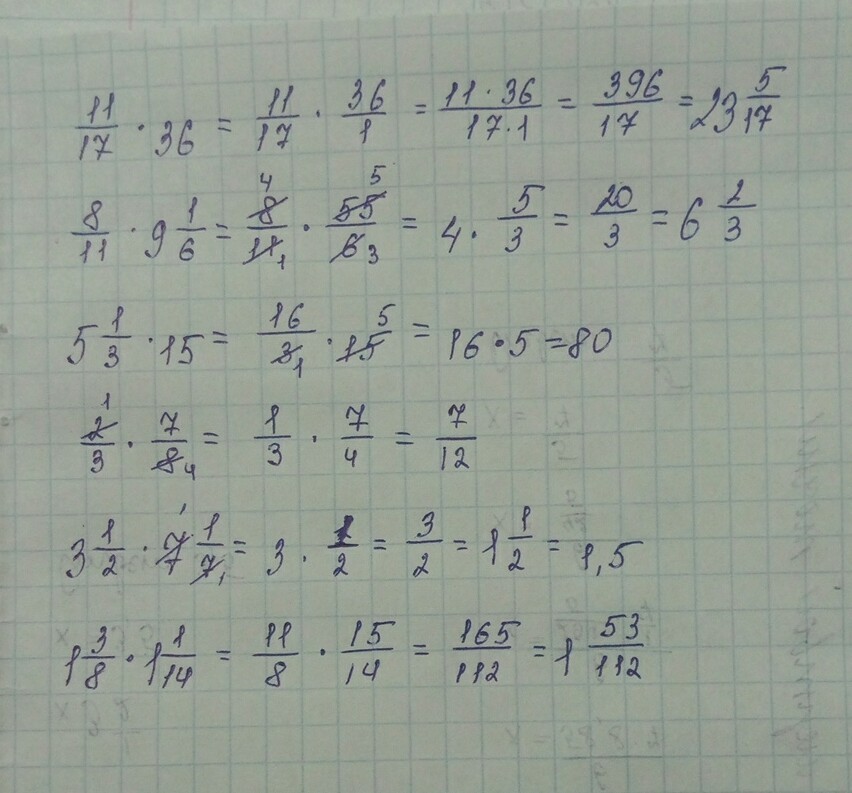 11/17 · 36 = 11/17 · 36/1 = 11·36/17·1 = 396/17 = 23 5/17
8/11 · 9 1/6 = 8/11 4 1 · 55/6 5 3 = 4 · 5/3 = 20/3 = 6 2/3
5 1/3 · 15 = 16/3 1 · 15 5 = 16 · 5 = 80
2/3 1 · 7/8 4 = 1/3 · 7/4 = 7/12
3 1/2 · 7 1 1/7 1 = 3 · 1/2 = 3/2 = 1 1/2 = 1,5
1 3/8 · 1 1/14 = 11/8 · 15/14 = 165/112 = 1 53/112